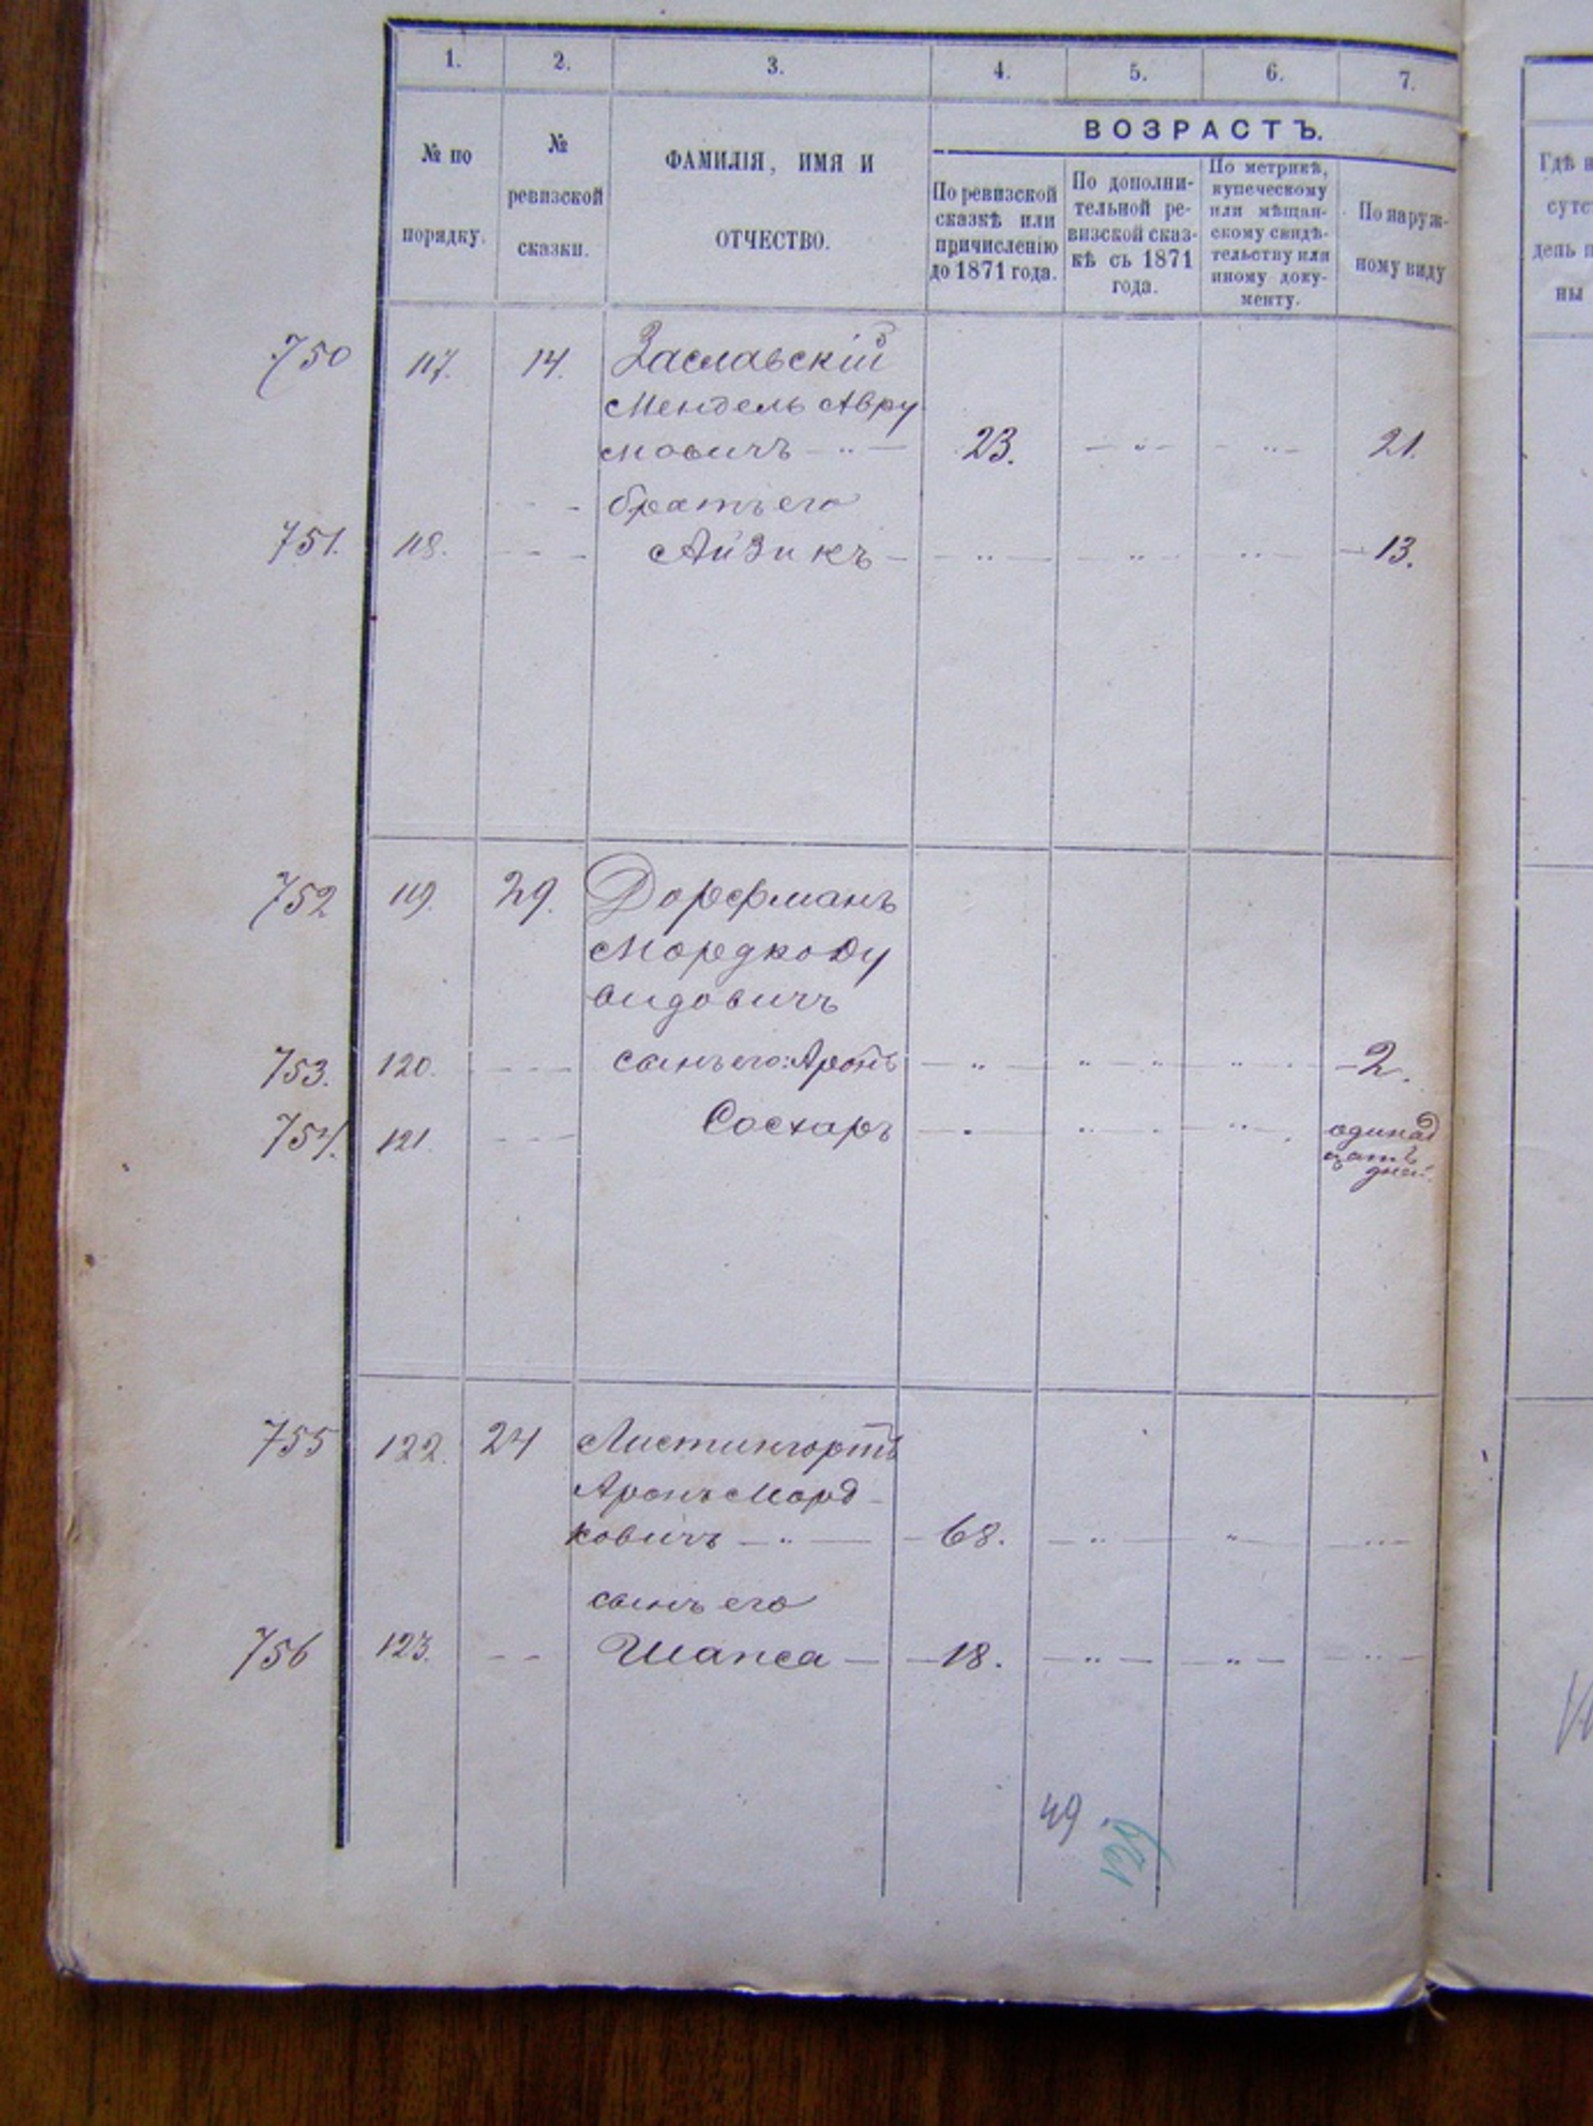 1. 2. 3. 4. 5. 6. 7.
№ по
порядку.
№
ревизской
сказки.
ФАМИЛІЯ, ИМЯ И
ОТЧЕСТВО.
ВОЗРАСТЪ.
По ревизской
сказкѣ или
причисленію
до 1871 года.
По дополни-
тельной ре-
визской сказ-
кѣ съ 1871
года.
По метрикѣ,
купеческому
или мѣщан-
скому свидѣ-
тельству или
иному доку-
менту.
По наруж-
ному виду
Гдѣ н
сутс
день п
ны
750 117. 14. Заславскій
Мендель Авру
мовичъ — „ — 23. — „ — — „ — 21.
братъ его
751. 118. Айзикъ — — „ — — „ — „ — 13.
752 119. 29. Дорфманъ
Мордко Ду
видовичъ
753. 120. сынъ его: Аронъ — „ — „ — „ — „ — 2.
754. 121. Сосхаръ — „ — „ — „ одинад
цать
дней.
755 122. 24 Листингортъ
Аронъ Морд
ковичъ — „ — — 68. — „ — „ — „ —
сынъ его
756 123. Шапса — — 18. — „ — — „ — — „ —
49